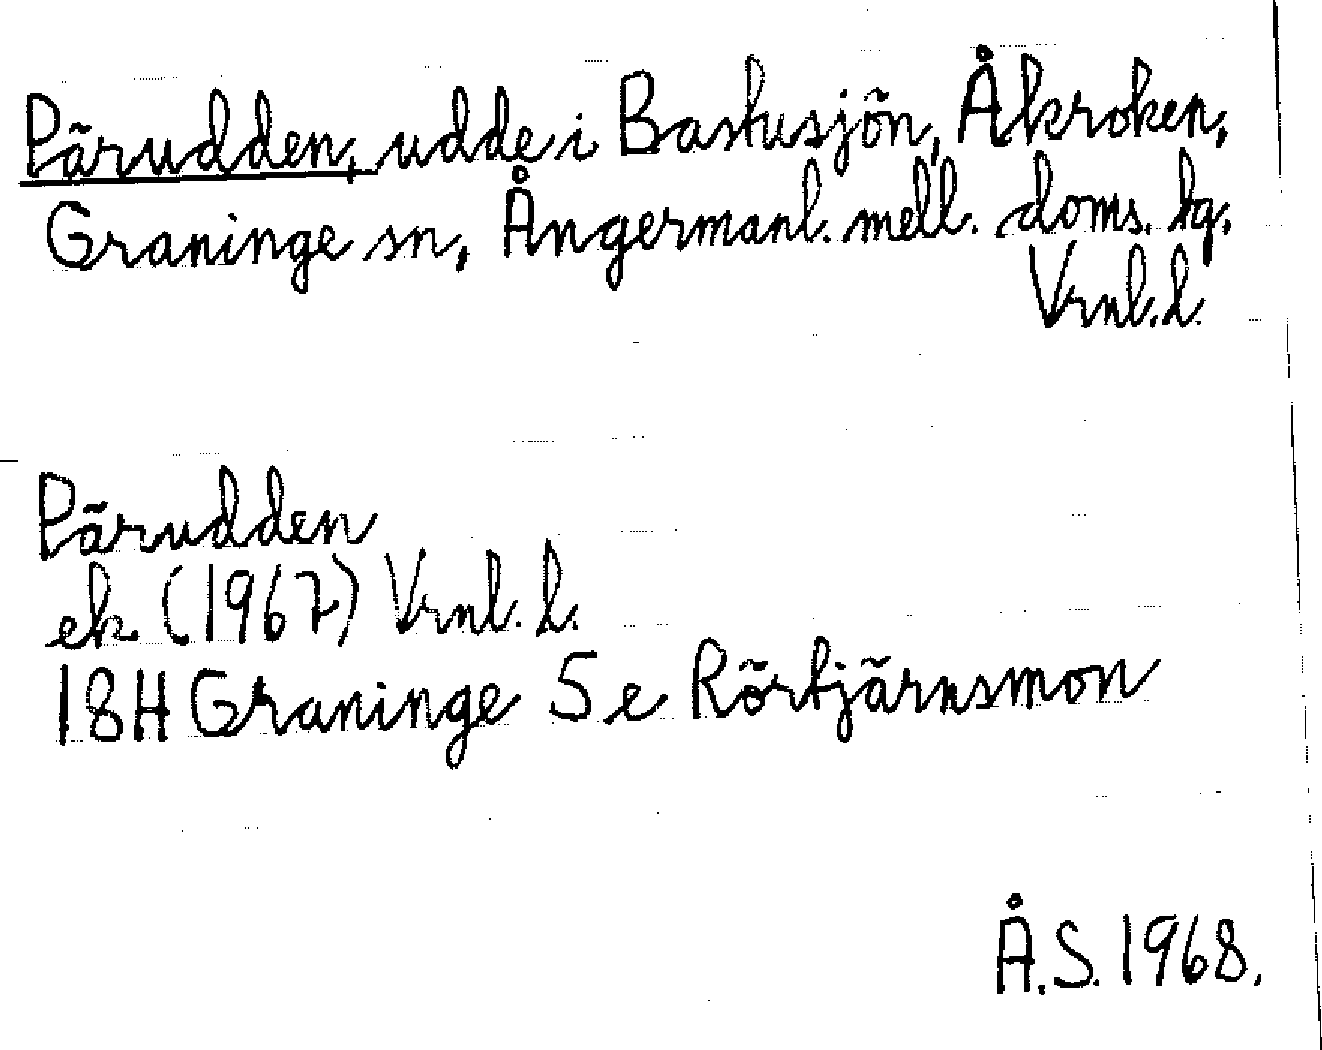 Pärudden, udde i Bastusjön, Åkroken,
Graninge sn, Ångermanl. mell. doms. hg.
Vrnl. l.
Pärudden
ek (1967) Vrnl. l.
18H Graninge 5 e Rörtjärnsmon
Å.S. 1968.